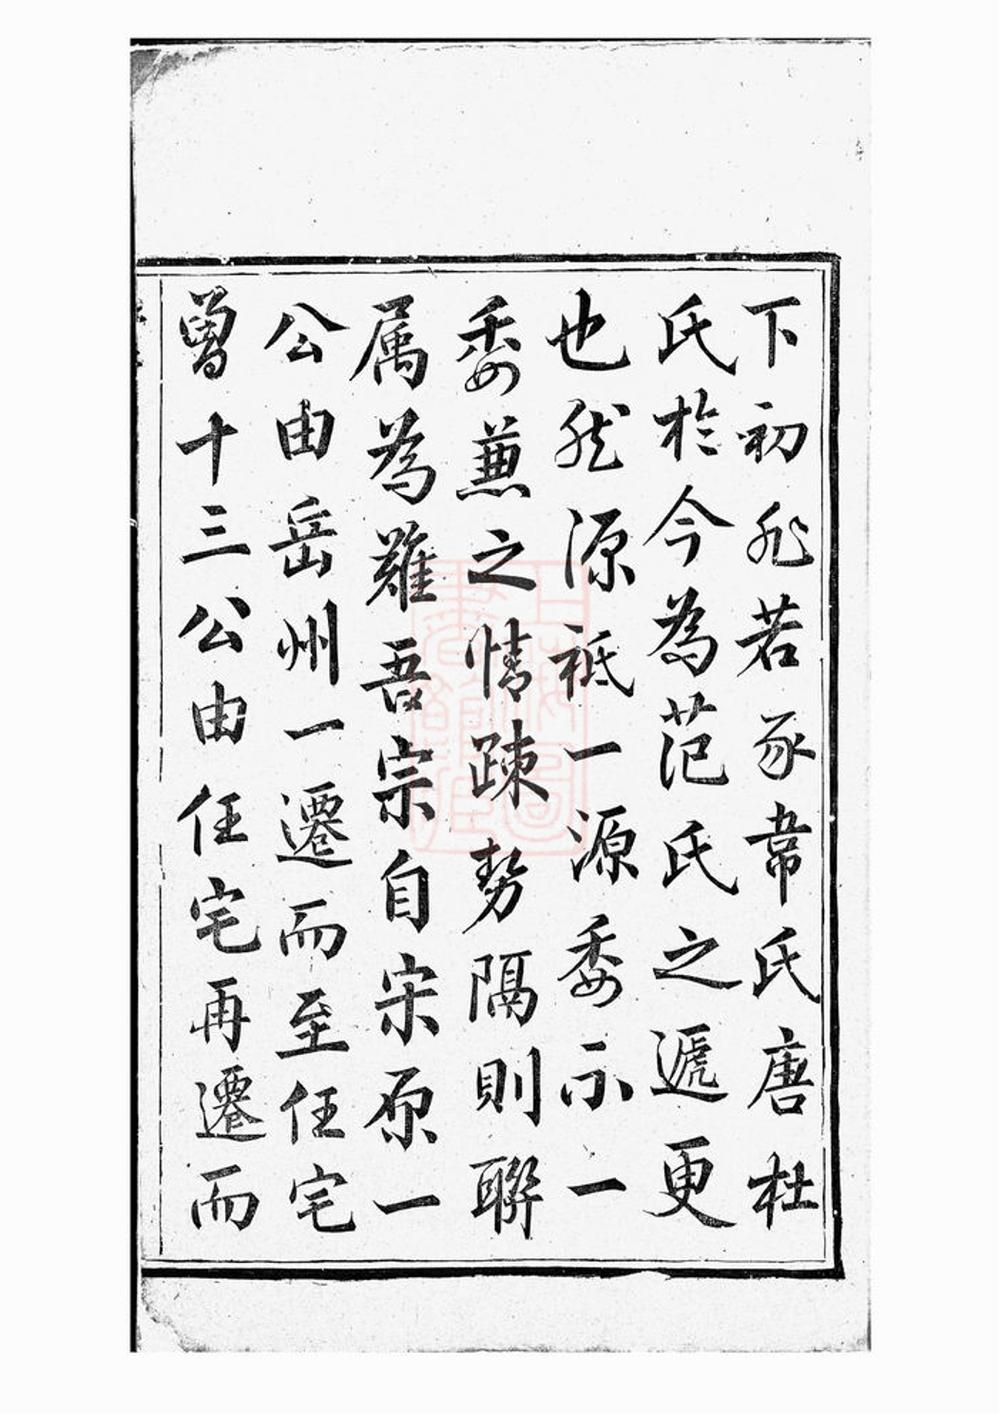 下初非若豕韋氏唐杜
氏於今為范氏之遞更
也然源祗一源委示一
委蕪之情疎勢隔則聯
属為難吾宗自宋原一
公由岳州一遷而至任宅
曾十三公由任宅再遷而